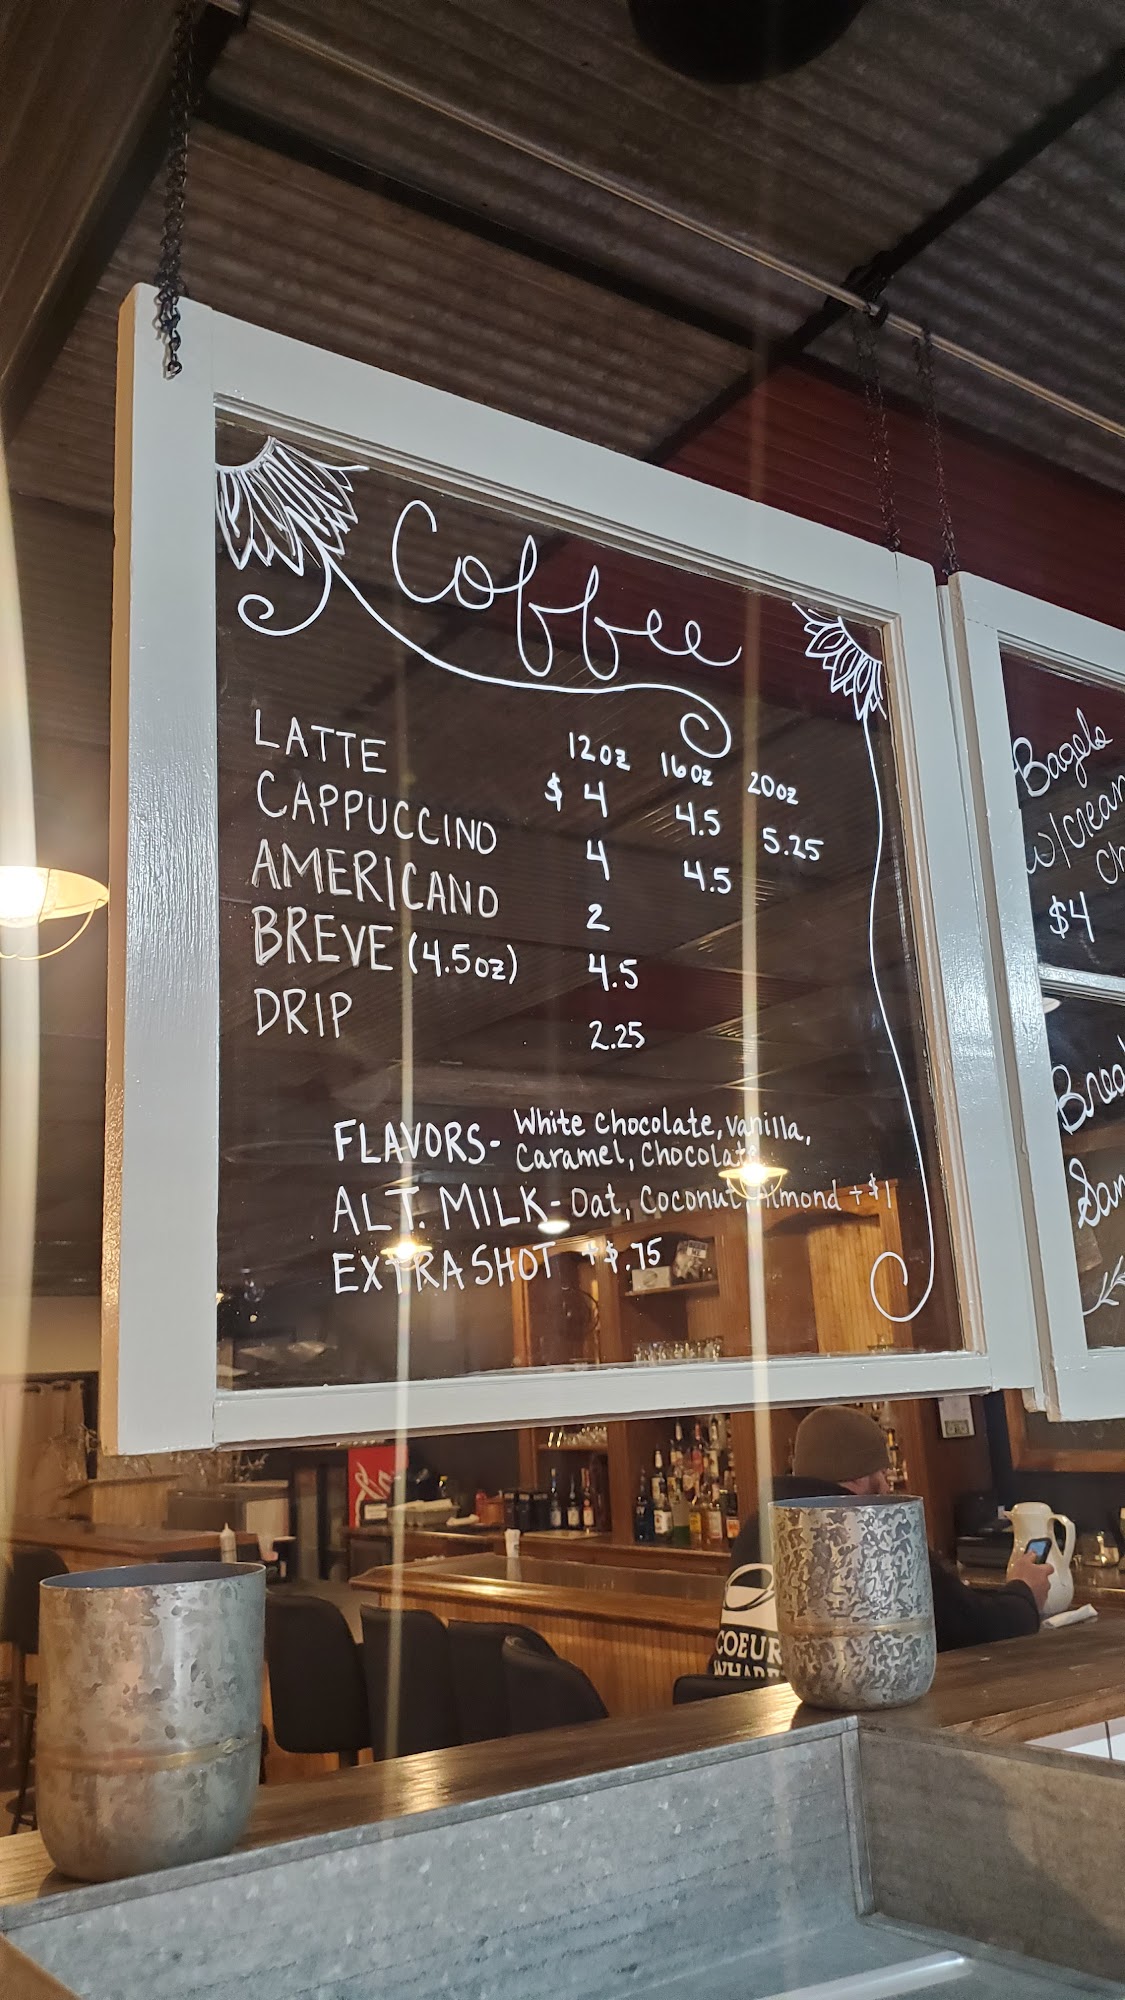 Coffee
12oz 16oz 20oz
LATTE $4 4.5 5.25
CAPPUCCINO 4 4.5
AMERICANO 2
BREVE (4.5oz) 4.5
DRIP 2.25
FLAVORS- White Chocolate, Vanilla,
Caramel, Chocolate
ALT. MILK- Oat, Coconut, Almond +$1
EXTRA SHOT +$.75
Bagels
w/crean
$4
COEUR